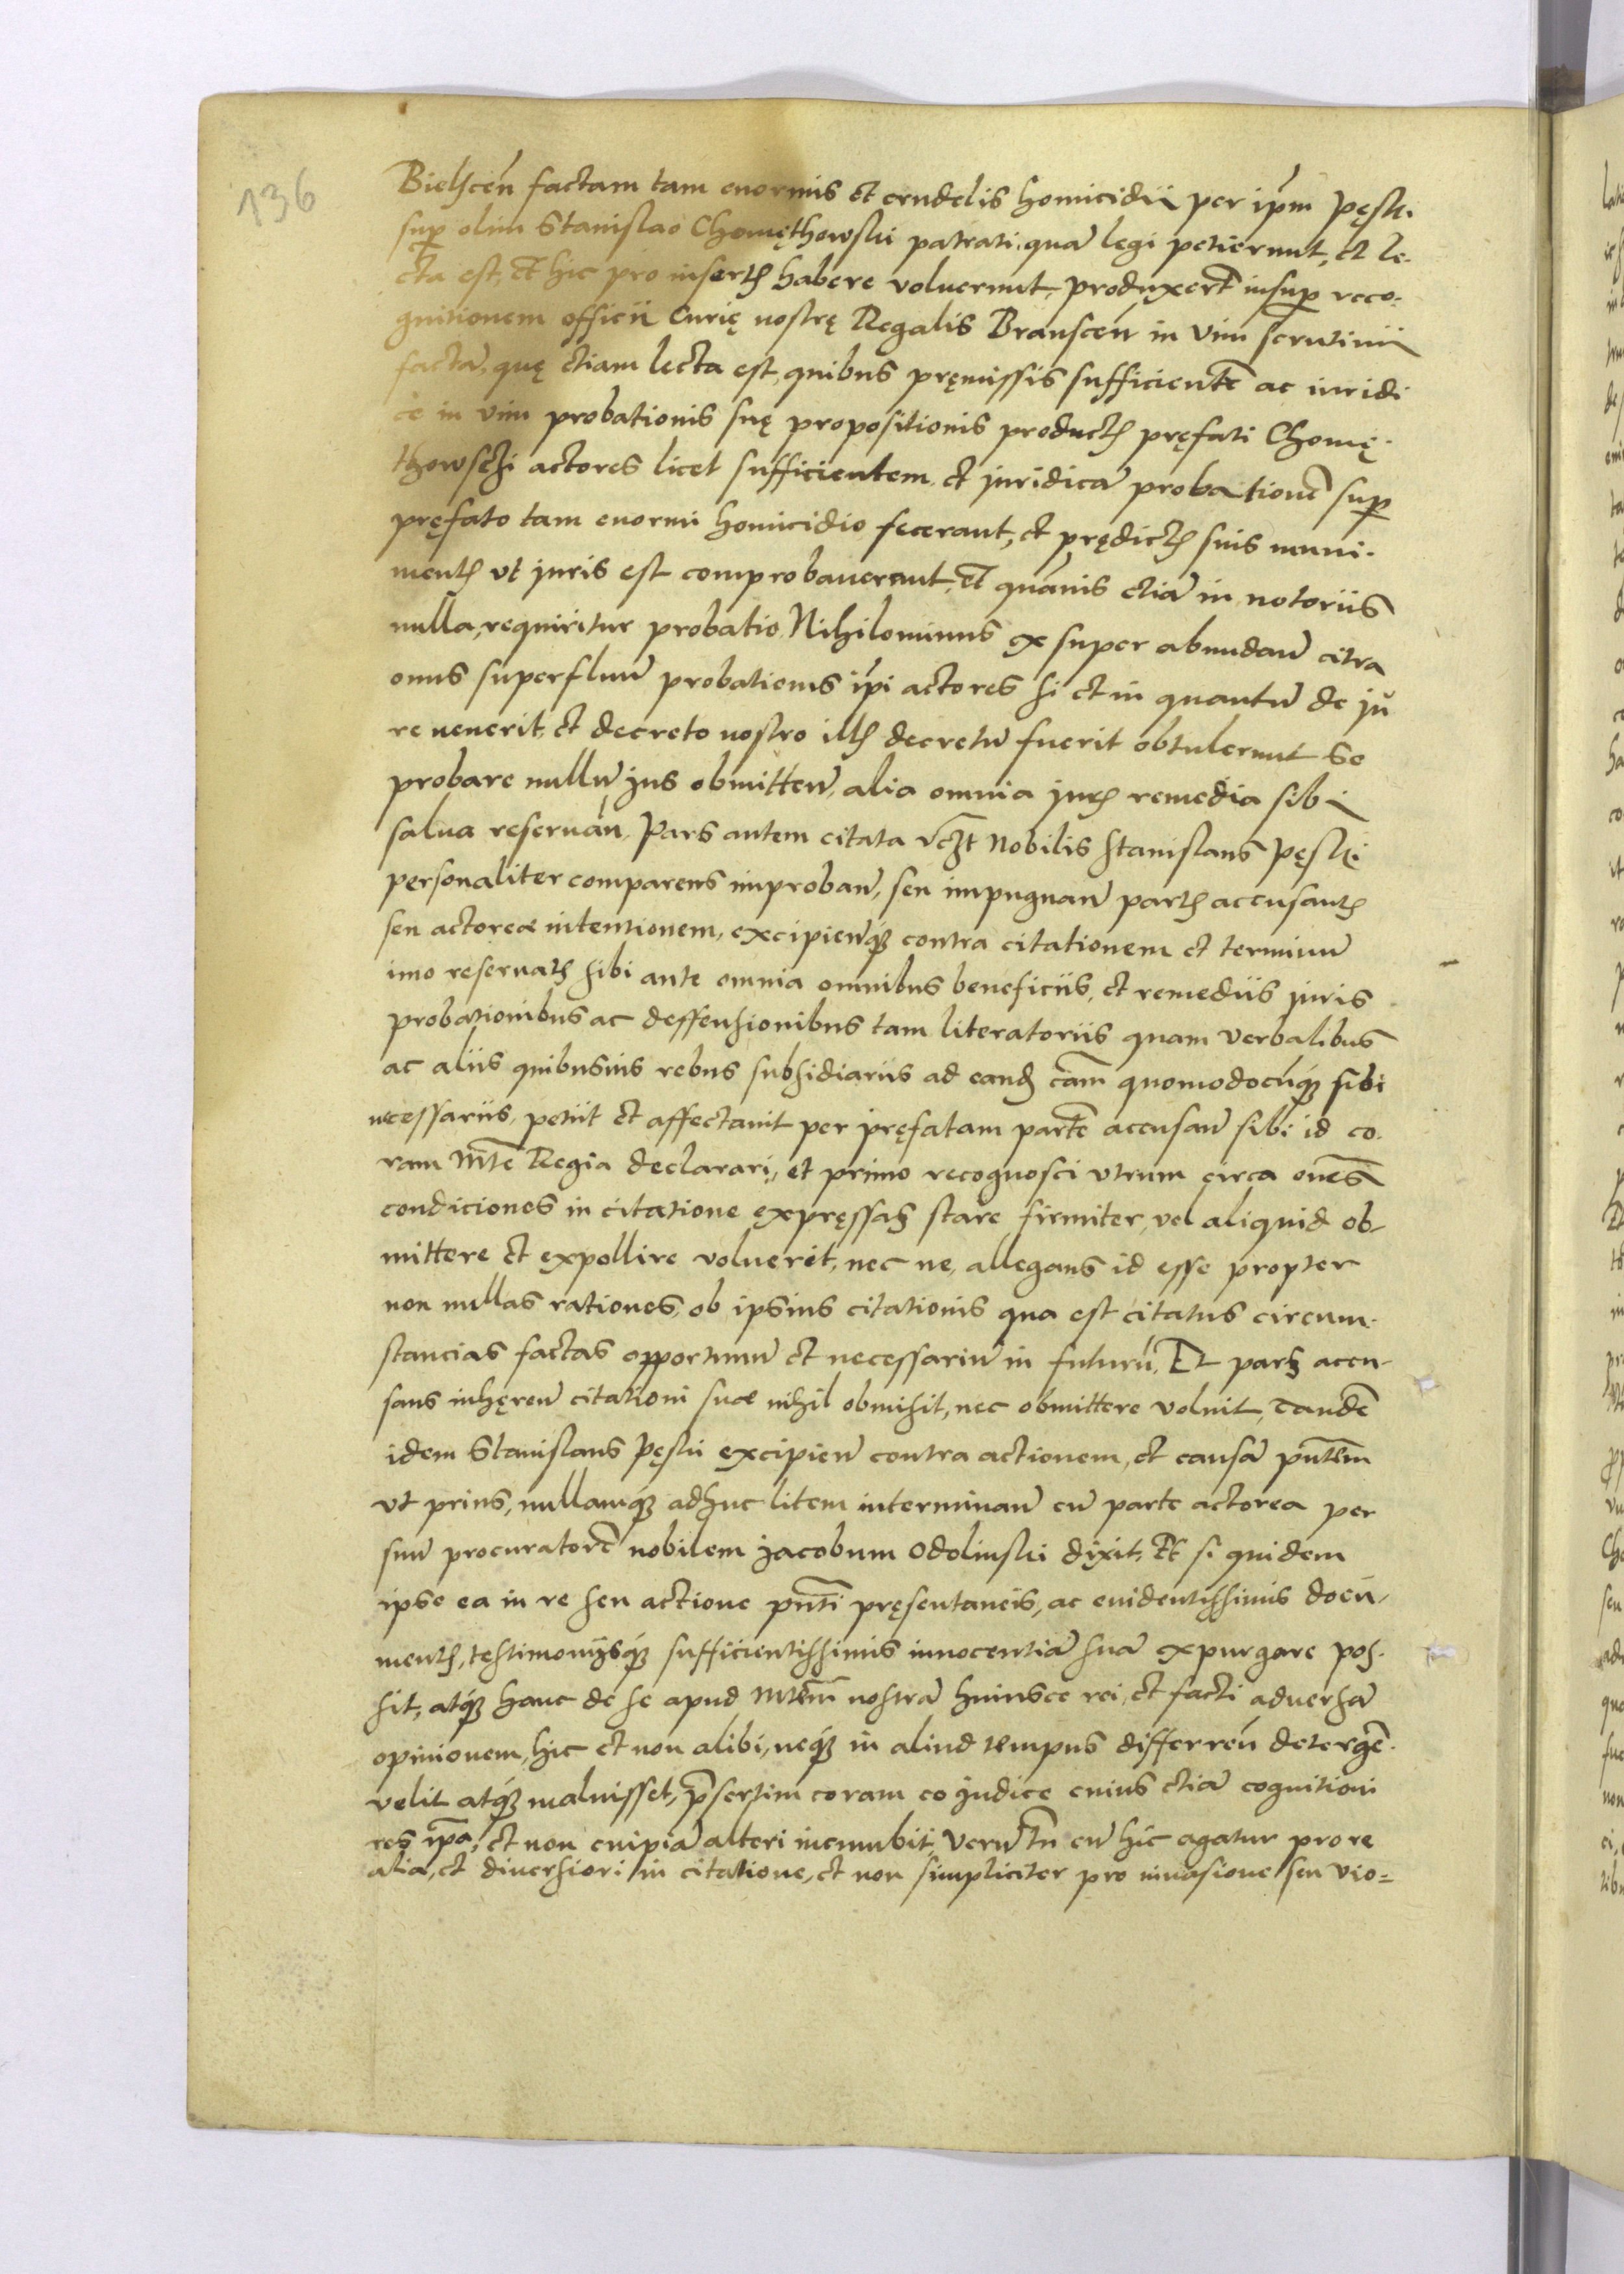 136
Bielscen̄ factam tam enormis et crudelis homicidii per ip̄m Pęski
sup̱ olim Stanislao Chomęthowski patrati, quā legi petierunt, et le-
cta est, et hic pro insertꝭ habere voluerunt, produxert̄ insup̱ reco-
gnitionem officii Curię nostrę Regalis Branscen̄ in vim scrutinii
factā, quę etiam lecta est, quibus pręmissis sufficientē ac iuridi
ce in vim probationis suę propositionis productꝭ pręfati Chomę-
thowschi actores licet sufficientem et juridicā probationē sup̱
pręfato tam enormi homicidio fecerant, et prędictꝭ suis muni-
mentꝭ vt juris est comprobauerant, Et quāuis etiā in notoriis
nulla requiritur probatio Nihilominus ex super abundan̄ citra
onus superfluū probationis ip̄i actores si et in quantū de ju
re venerit, et decreto nostro illꝭ decretū fuerit obtulerunt se
probare nullū jus obmitten̄, alia omnia jurꝭ remedia sibi
salua reseruan̄, Pars autem citata vcꝫt Nobilis Stanislaus Pęski
personaliter comparens improban̄, seu impugnan̄ partꝭ accusantꝭ
seu actoreæ intentionem, excipienq̄ꝫ contra citationem et terminū
imo reseruatꝭ sibi ante omnia omnibus beneficiis, et remediis juris
probationibus ac deffensionibus tam literatoriis quam verbalibus
ac aliis quibusuis rebus subsidiariis ad eandꝫ cām quomodocūqꝫ sibi
necessariis, petiit et affectauit per pręfatam partē accusan̄ sibi id co-
ram Mt̄e Regia declarari, et primo recognosci vtrum circa oēs
condiciones in citatione expręssas stare firmiter, vel aliquid ob-
mittere et expollire voluerit, nec ne, allegans id esse propter
non nullas rationes, ob ipsius citationis qua est citatus circum-
stancias factas opportunū et necessariū in futurū, Et pars accu-
sans inhęren̄ citationi suæ nihil obmisit, nec obmittere voluit, Tandē
idem Stanislaus Pęski excipien̄ contra actionem, et causā pn̄tem
vt prius, nullamqꝫ adhuc litem interminan̄ cū parte actorea per
suū procuratorē nobilem Jacobum Odolinski dixit, Et si quidem
ipse ea in re seu actione pn̄ti pręsentaneis, ac euidentissimis docu-
mentꝭ, testimonijsqꝫ sufficientissimis innocentiā suā expurgare pos-
sit, atqꝫ hanc de se apud Mt̄em nostrā huiusce rei, et facti aduersā
opinionem, hic et non alibi, neqꝫ in aliud tempus differren̄ detergē-
velit atqꝫ maluisset, p̄sertim coram eo judice cuius etiā cognitioni
res ip̄a, et non cuipiā alteri incumbit, Verū tn̄ cū hic agatur pro re
alia, et diuersiori in citatione, et non simpliciter pro inuasione seu vio=